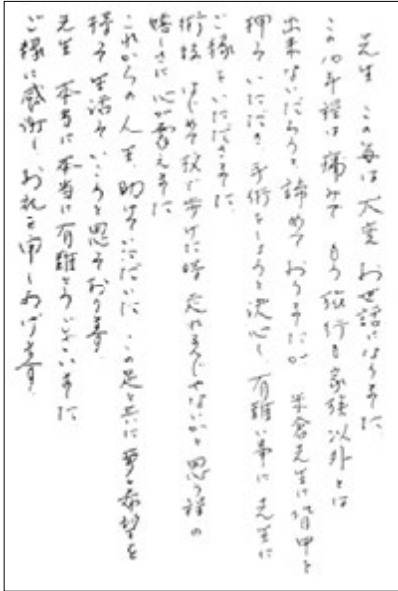 先生 この毎は大変お世話になりました
この10年程は痛みで もう旅行も家族以外とは
出来ないだろうと諦めておりましたが 米倉先生に背中を
押していただき 手術をしようと決心し 有難い事に先生に
ご縁をいただきました
術後 はじめて杖で歩けた時 走れるんじゃないかと思う程の
嬉しさに心が震えました
これからの人生 助けていただいた この足と共に夢と希望を
持って生活していこうと思っております
先生 本当に本当に有難とうございました
ご縁に感謝し お礼を申しあげます